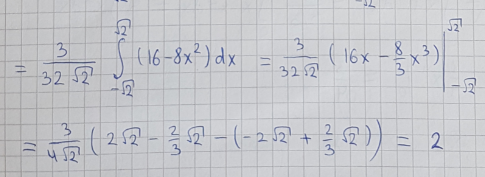 = 3/(32√2) ∫_{-√2}^{√2} (16-8x²) dx = 3/(32√2) (16x - 8/3 x³) |_{-√2}^{√2}
= 3/(4√2) (2√2 - 2/3 √2 - (-2√2 + 2/3 √2)) = 2